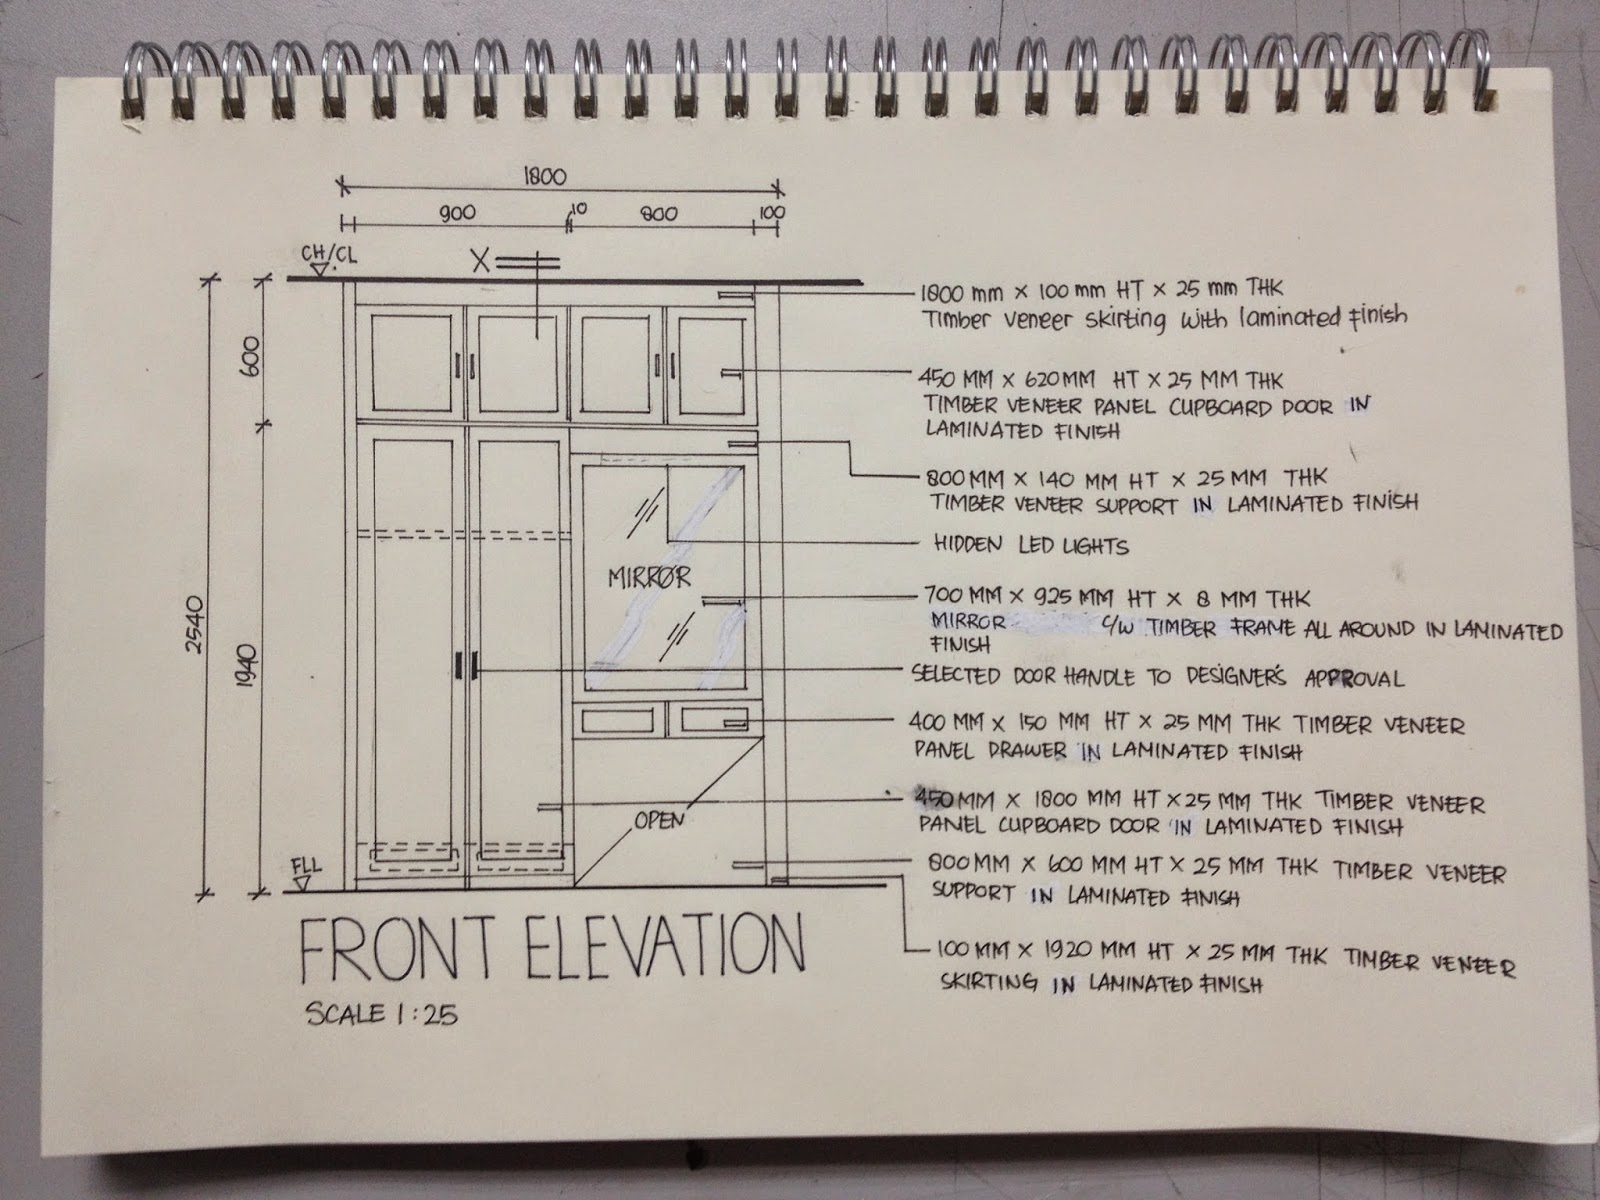 1800
900
10
800
100
CH/CL
X
600
1940
2540
MIRROR
OPEN
FLL
1800 mm x 100 mm HT x 25 mm THK
Timber veneer skirting with laminated finish
450 MM x 620MM HT x 25 MM THK
TIMBER VENEER PANEL CUPBOARD DOOR IN
LAMINATED FINISH
800MM x 140 MM HT x 25 MM THK
TIMBER VENEER SUPPORT IN LAMINATED FINISH
HIDDEN LED LIGHTS
700 MM x 925 MM HT x 8 MM THK
MIRROR C/W TIMBER FRAME ALL AROUND IN LAMINATED
FINISH
SELECTED DOOR HANDLE TO DESIGNER'S APPROVAL
400 MM x 150 MM HT x 25 MM THK TIMBER VENEER
PANEL DRAWER IN LAMINATED FINISH
450MM x 1800 MM HT x 25 MM THK TIMBER VENEER
PANEL CUPBOARD DOOR IN LAMINATED FINISH
800MM x 600 MM HT x 25 MM THK TIMBER VENEER
SUPPORT IN LAMINATED FINISH
100 MM x 1920 MM HT x 25 MM THK TIMBER VENEER
SKIRTING IN LAMINATED FINISH
FRONT ELEVATION
SCALE 1:25